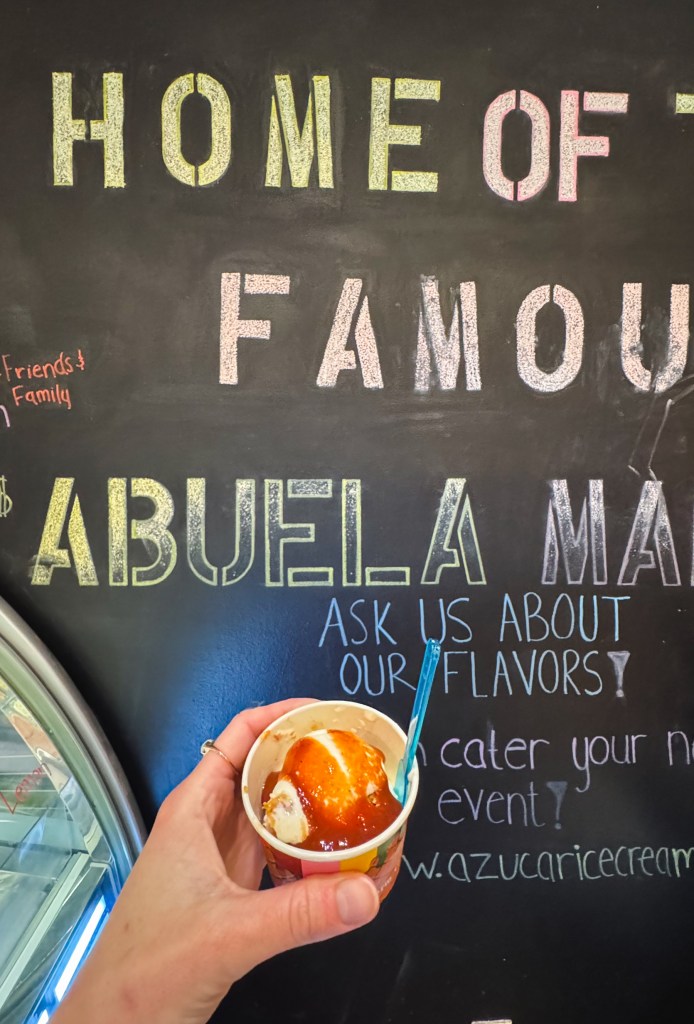 HOME OF
FAMOU
Friends &
Family
ABUELA MA
ASK US ABOUT
OUR FLAVORS!
cater your
event!
w.azucaricecream